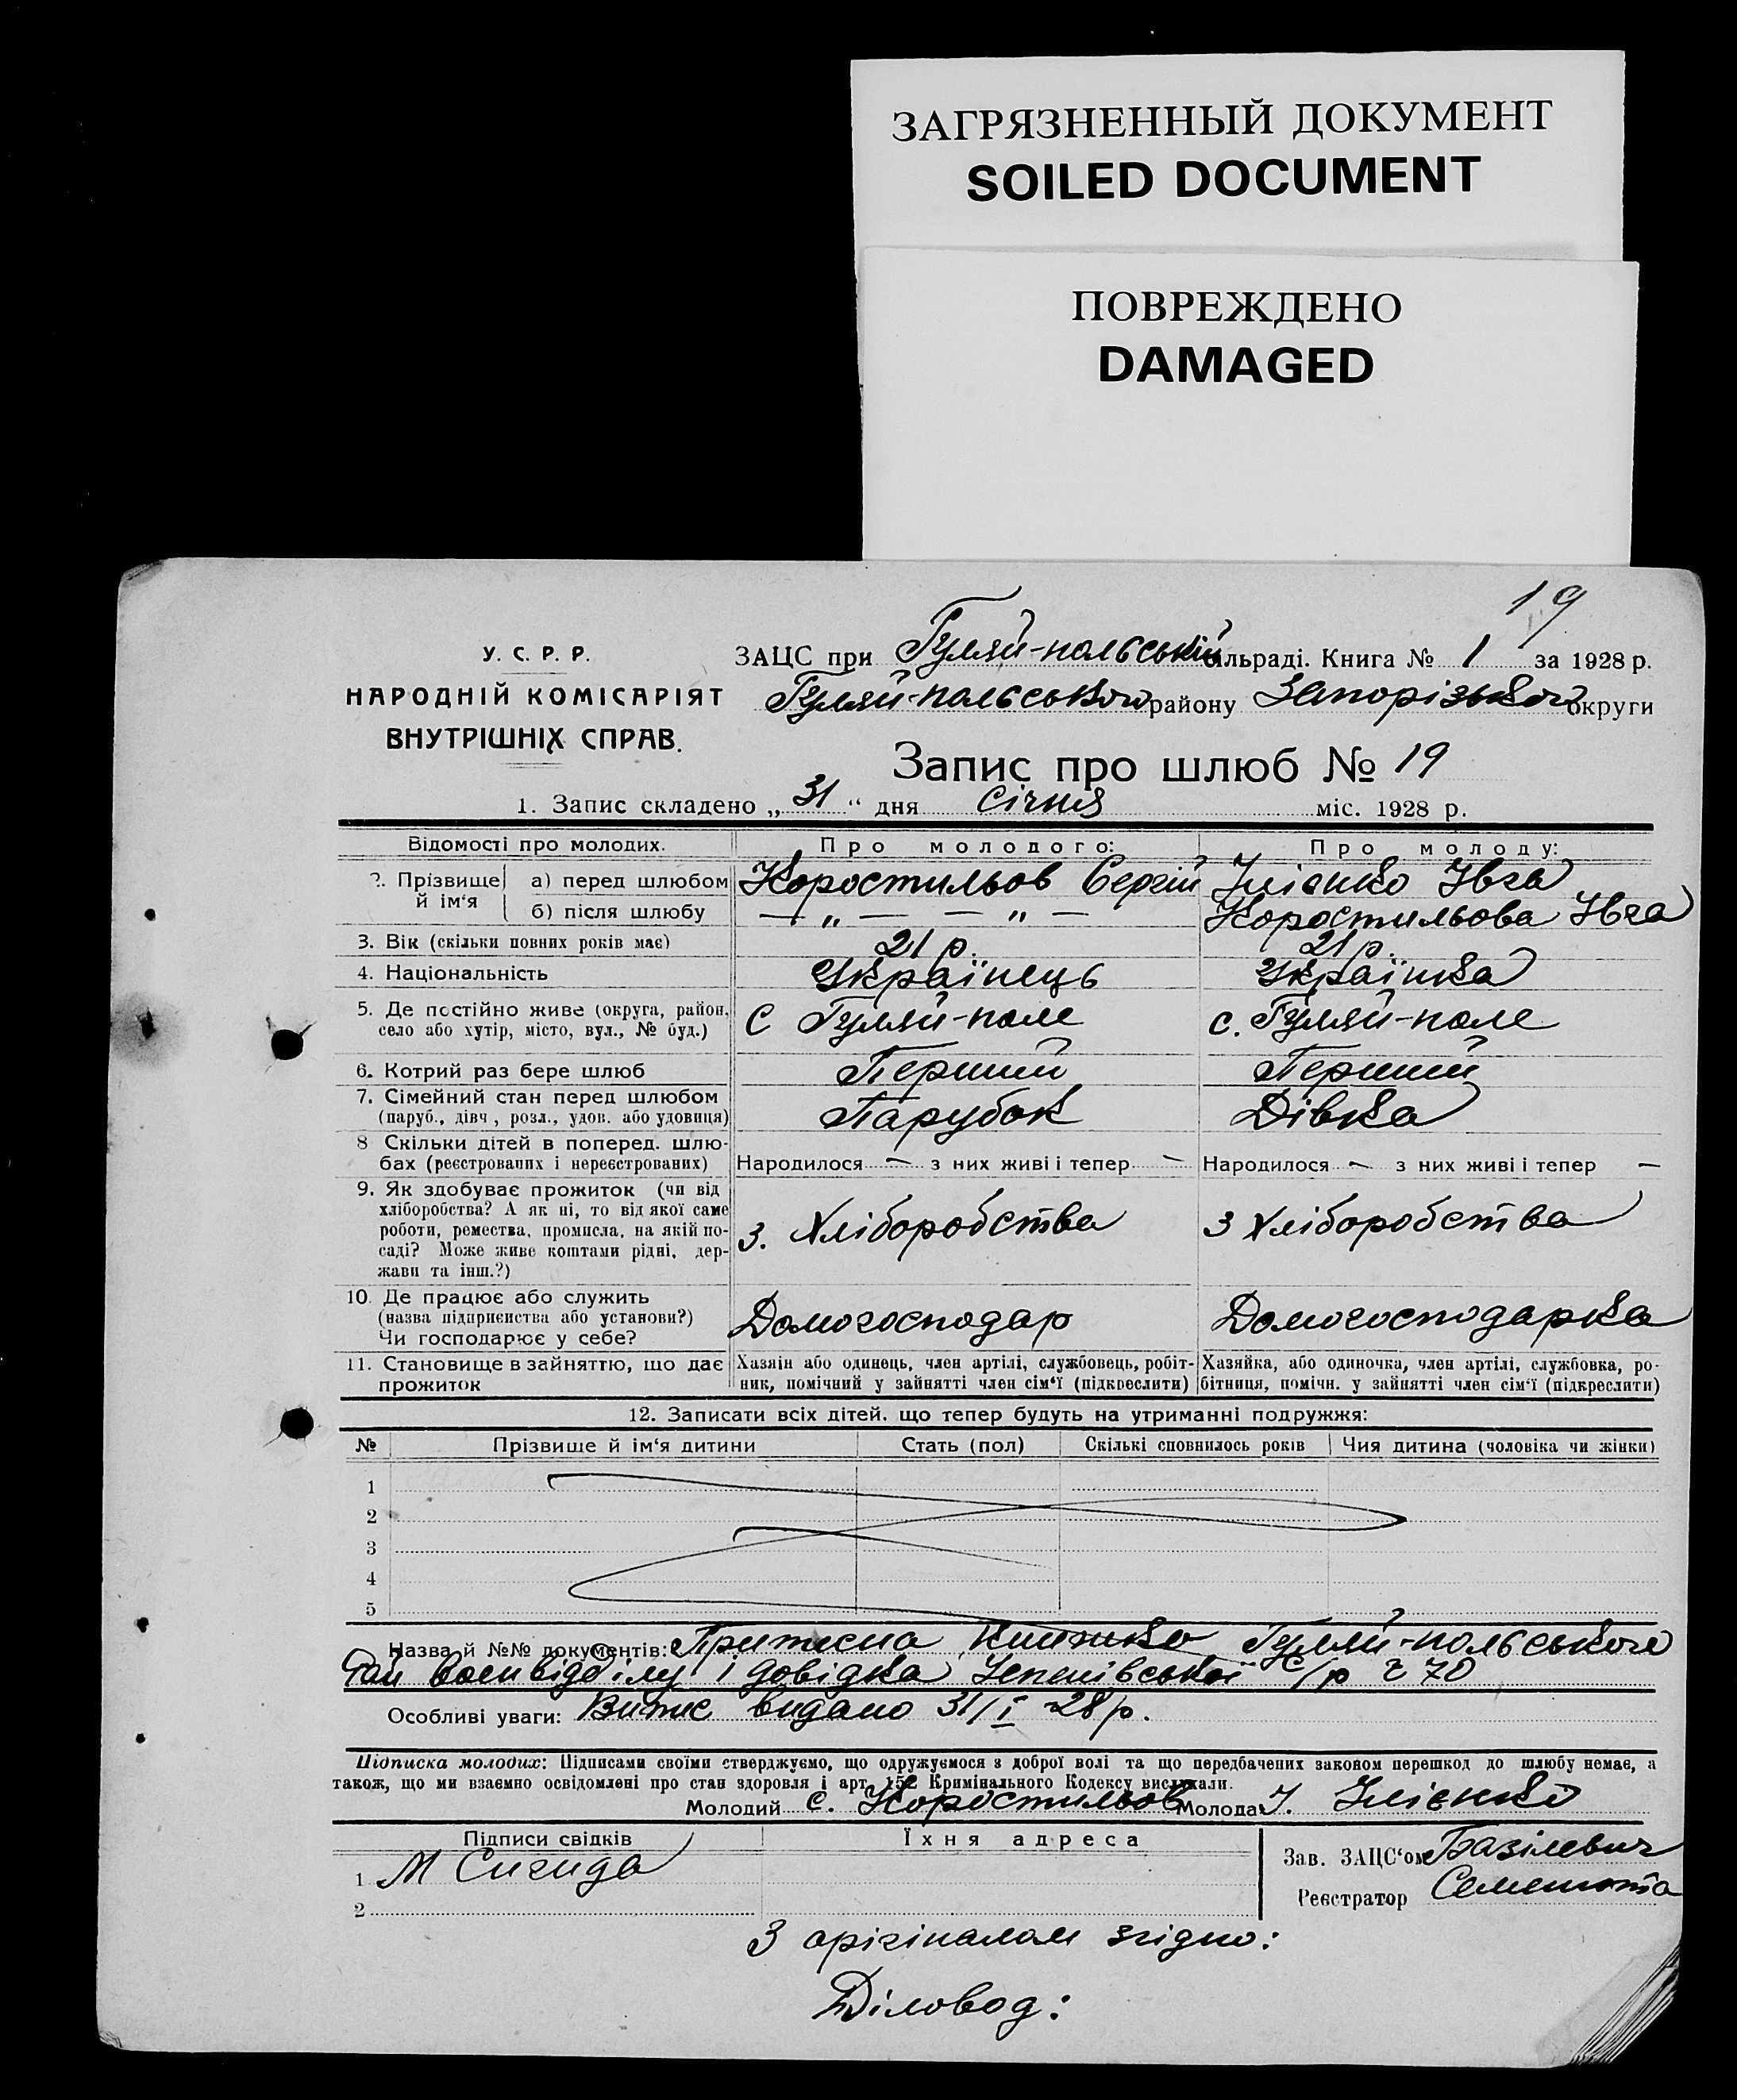 ЗАГРЯЗНЕННЫЙ ДОКУМЕНТ
SOILED DOCUMENT
ПОВРЕЖДЕНО
DAMAGED
19
У. С. Р. Р.
НАРОДНІЙ КОМІСАРІЯТ
ВНУТРІШНІХ СПРАВ.
ЗАЦС при Гуляй-польській сільраді. Книга № 1 за 1928 р.
Гуляй-польського району Запорізької округи
Запис про шлюб № 19
1. Запис складено „ 31 “ дня січня міс. 1928 р.
Відомості про молодих. Про молодого: Про молоду:
2. Прізвище й ім‘я а) перед шлюбом Коростильов Сергій Ілієнко Ївга
б) після шлюбу — „ — — „ — Коростильова Ївга
3. Вік (скільки повних років має) 21 р. 21 р.
4. Національність Українець Українка
5. Де постійно живе (округа, район, С Гуляй-поле с. Гуляй-поле
село або хутір, місто, вул., № буд.)
6. Котрий раз бере шлюб Перший Перший
7. Сімейний стан перед шлюбом Парубок Дівка
(паруб., дівч, розл., удов. або удовиця)
8 Скільки дітей в поперед. шлю-
бах (реєстрованих і нереєстрованих) Народилося — з них живі і тепер — Народилося — з них живі і тепер —
9. Як здобуває прожиток (чи від
хліборобства? А як ні, то від якої саме
роботи, ремества, промисла, на якій по- з. Хліборобства з Хліборобства
саді? Може живе коштами рідні, дер-
жави та інш.?)
10. Де працює або служить
(назва підприєиства або установи?) Домогосподар Домогосподарка
Чи господарює у себе?
11. Становище в зайняттю, що дає Хазяін або одинець, член артілі, службовець, робіт- Хазяйка, або одиночка, член артілі, службовка, ро-
прожиток ник, помічний у зайнятті член сім‘ї (підкреслити) бітниця, помічн. у зайнятті член сім‘ї (підкреслити)
12. Записати всіх дітей. що тепер будуть на утриманні подружжя:
№ Прізвище й ім‘я дитини Стать (пол) Скількі сповнилось років Чия дитина (чоловіка чи жінки)
1
2
3
4
5
Назва й №№ документів: Приписна книжка Гуляй-польського
Рай военвідділу і довідка Успенівської с/р № 70
Особливі уваги: Витис видано 31/I 28 р.
Підписка молодих: Підписами своїми стверджуємо, що одружуємося з доброї волі та що передбачених законом перешкод до шлюбу немає, а
також, що ми взаємно освідомлені про стан здоровля і арт. 152 Кримінального Кодексу вислухали.
Молодий С. Коростильов Молода Ї. Ілієнко
Підписи свідків Їхня адреса
1 М Сигида
2
Зав. ЗАЦС‘ом Базілевич
Реєстратор
З орігіналом згідно:
Діловод: